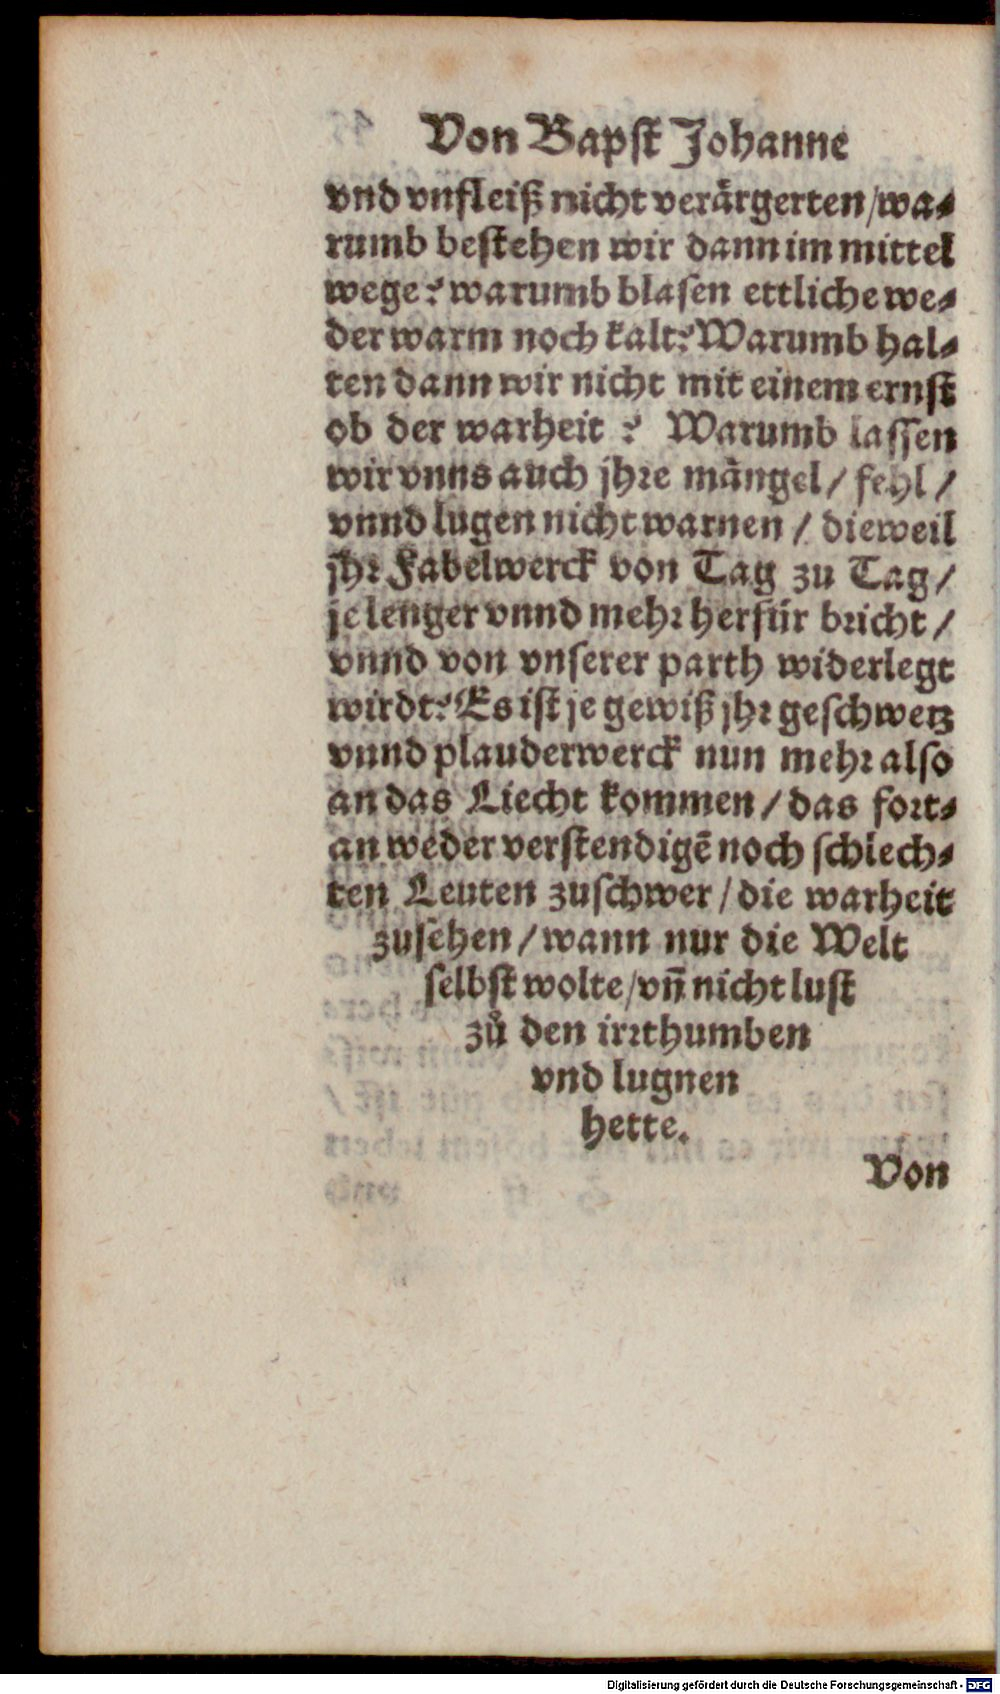 Von Bapst Johanne
vnd vnfleiß nicht verärgerten/wa-
rumb bestehen wir dann im mittel
wege? warumb blasen ettliche we-
der warm noch kalt? Warumb hal-
ten dann wir nicht mit einem ernst
ob der warheit ? Warumb lassen
wir vnns auch jhre mängel/ fehl/
vnnd lugen nicht warnen / dieweil
jhr Fabelwerck von Tag zu Tag/
je lenger vnnd mehr herfür bricht/
vnnd von vnserer parth widerlegt
wirdt? Es ist je gewiß jhr geschwetz
vnnd plauderwerck nun mehr also
an das Liecht kommen/das fort-
an weder verstendigē noch schlech-
ten Leuten zuschwer/die warheit
zusehen/wann nur die Welt
selbst wolte/vñ nicht lust
zů den irrthumben
vnd lugnen
hette.
Von
Digitalisierung gefördert durch die Deutsche Forschungsgemeinschaft - DFG